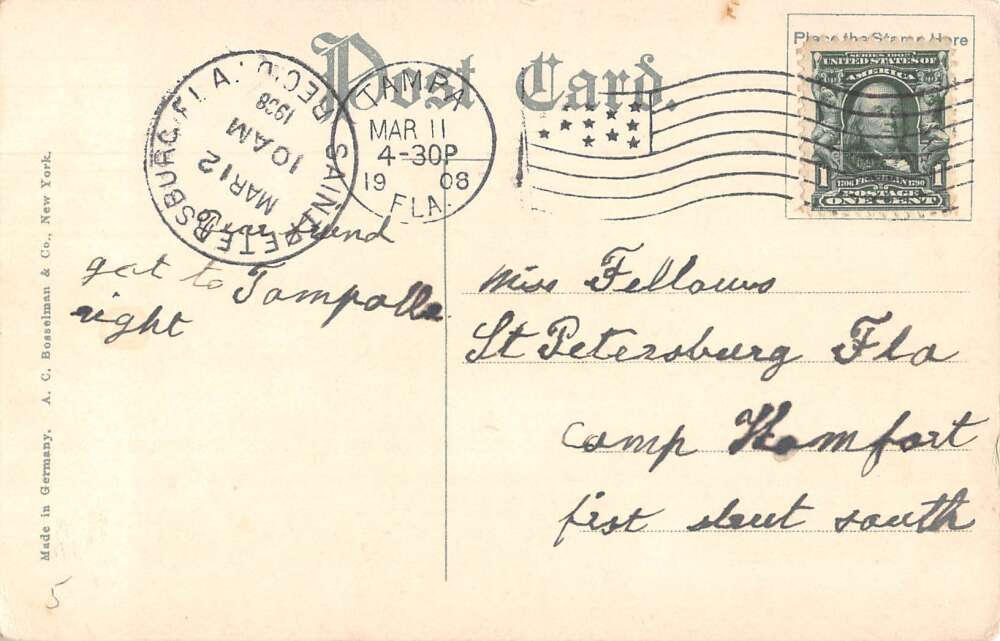 Post Card.
Place the Stamp Here
SERIES 1902
UNITED STATES OF
AMERICA
1 1706 FRANKLIN 1790 1
POSTAGE
ONE CENT
TAMPA
MAR 11
4-30P
19 08
FLA.
SAINT PETERSBURG, FLA. REC'D
1908
10 AM
MAR 12
Dear friend
got to Tampa all
right
Miss Fellows
St Petersburg Fla
Camp Komfort
first street south
Made in Germany. A. C. Bosselman & Co., New York.
5